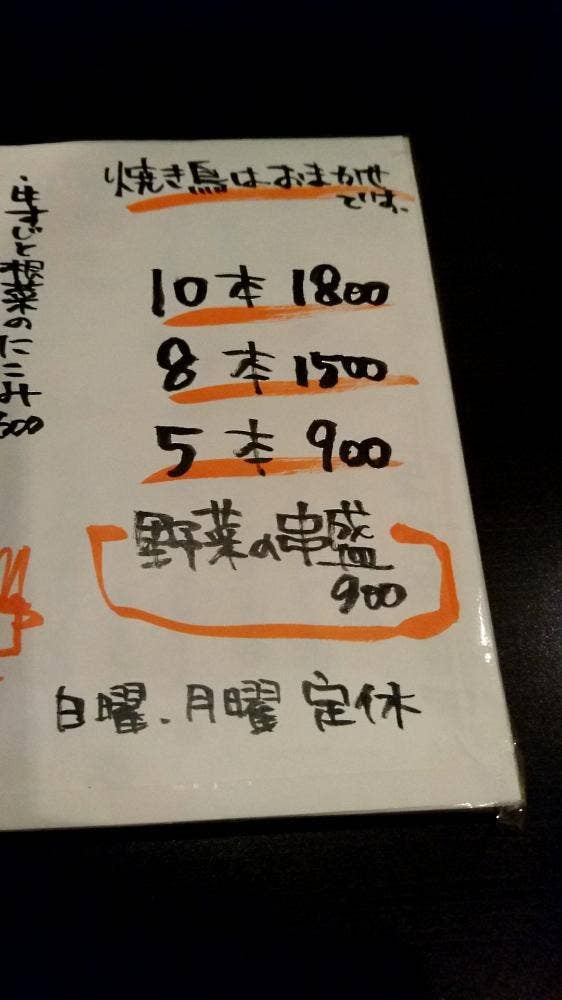 焼き鳥は、おまかせ
では、
10本 1800
8本 1500
5本 900
野菜の串盛
900
日曜、月曜 定休
・牛すじと根菜のにこみ